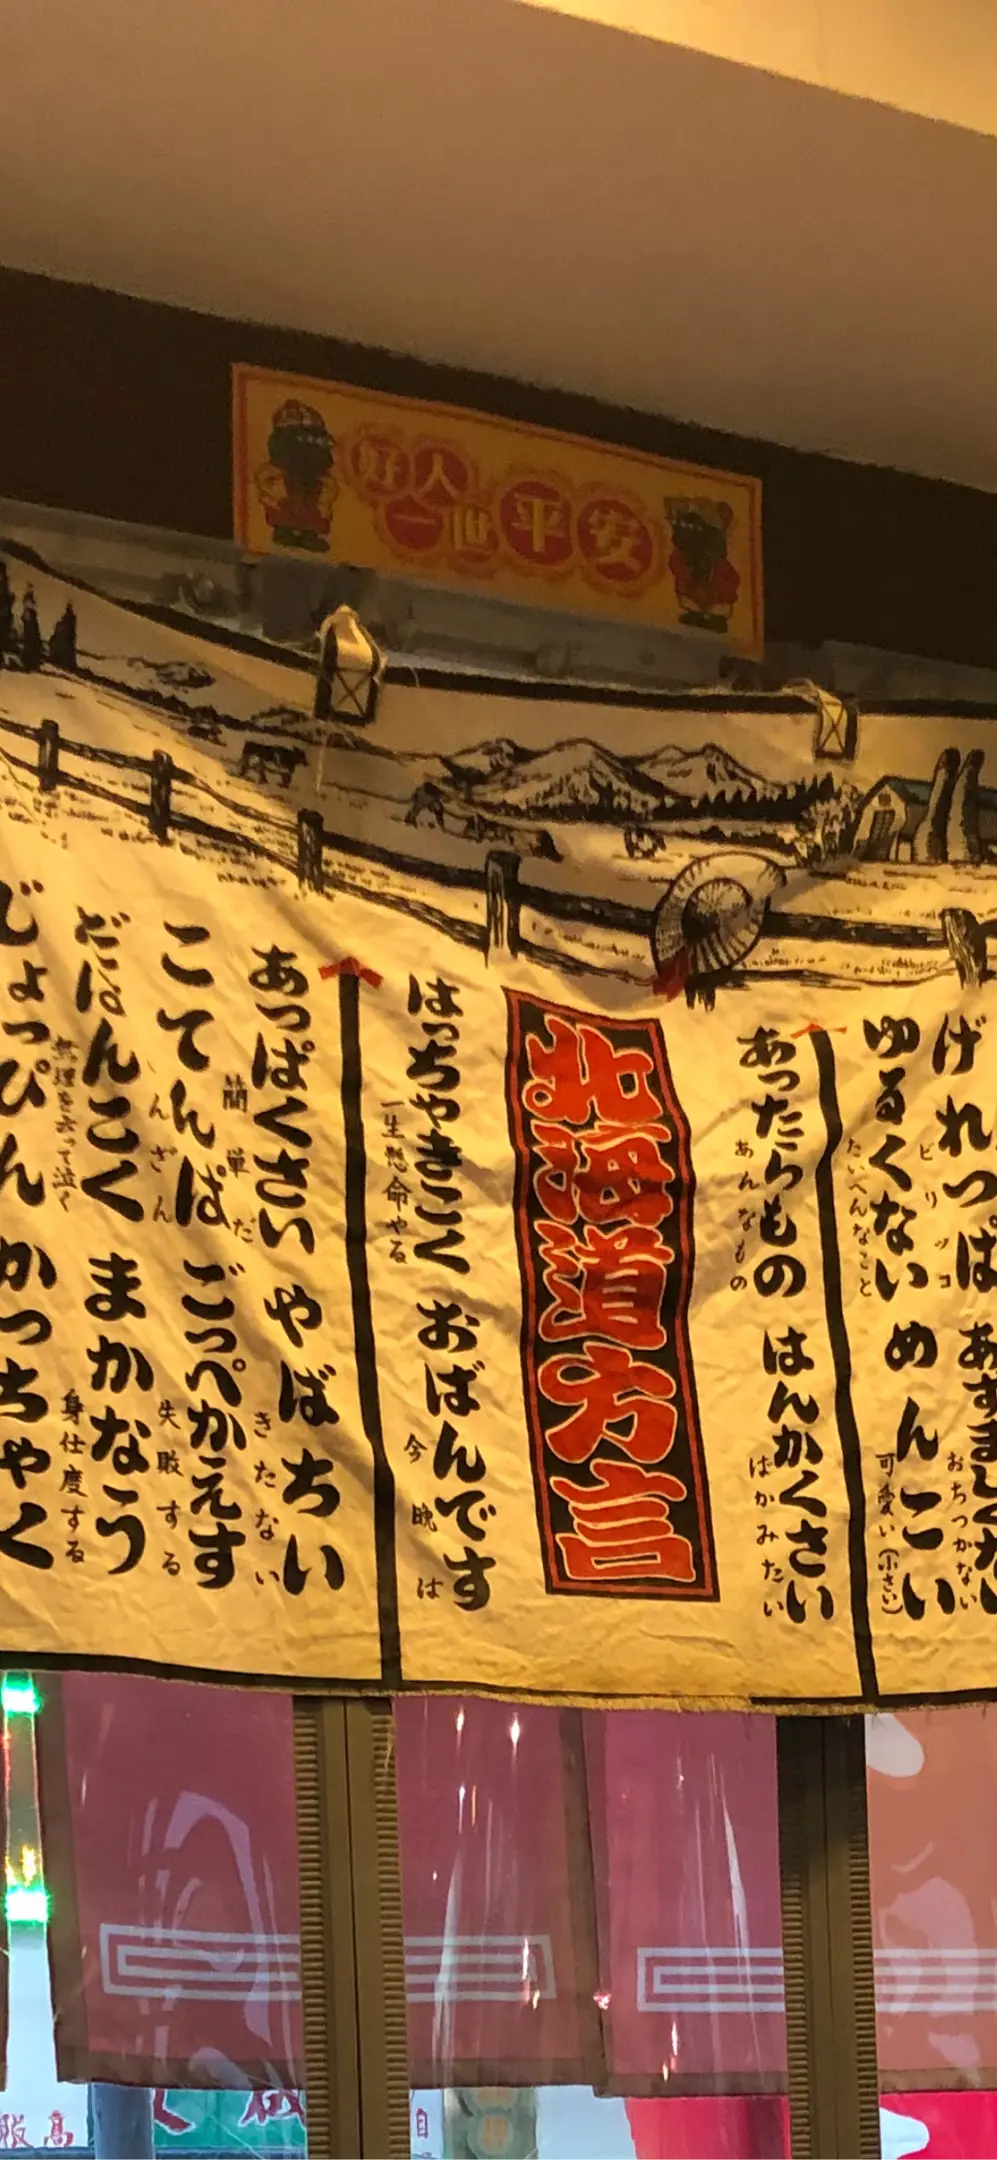 好人
一世平安
げれっぱ あずましくない
ビリッコ おちつかない
ゆるくない めんこい
たいへんなこと 可愛い(小さい)
あったらもの はんかくさい
あんなもの ばかみたい
北海道方言
はっちゃきこく おばんです
一生懸命やる 今晩は
あっぱくさい やばちい
簡単だ きたない
こてんぱ ごっぺかえす
んざん 失敗する
だはんこく まかなう
無理を云って泣く 身仕度する
じょっぴん かっちゃく